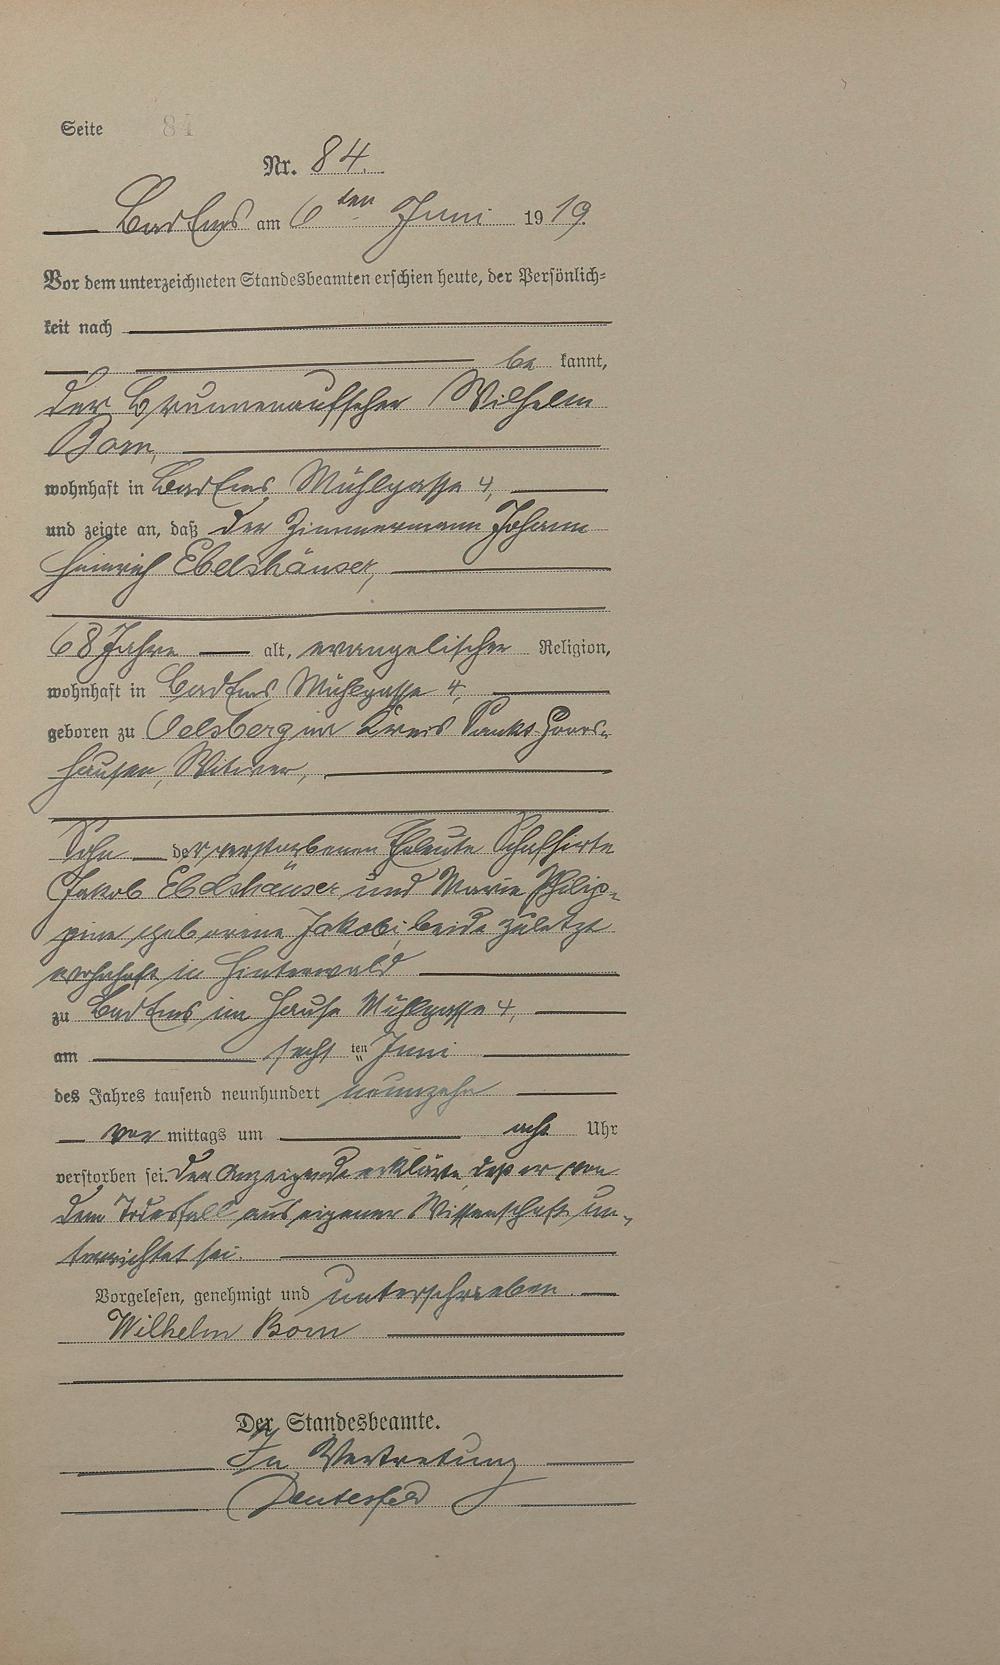 Seite 84
Nr. 84.
Bad Ems am 6ten Juni 1919.
Vor dem unterzeichneten Standesbeamten erschien heute, der Persönlich=
keit nach
be kannt,
der Brunnenaufseher Wilhelm
Born,
wohnhaft in Bad Ems, Mühlgasse 4,
und zeigte an, daß der Zimmermann Johann
Heinrich Ebelshäuser,
68 Jahre alt, evangelischer Religion,
wohnhaft in Bad Ems Mühlgasse 4,
geboren zu Oelsberg im Kreis Sankt Goars-
hausen, Witwer,
Sohn der verstorbenen Eheleute Schafhirte
Jakob Ebelshäuser und Marie Philip-
pine geborene Jakobi, beide zuletzt
wohnhaft in Hinterwald
zu Bad Ems im Hause Mühlgasse 4,
am sechsten Juni
des Jahres tausend neunhundert neunzehn
vor mittags um acht Uhr
verstorben sei. Der Anzeigende erklärte, daß er von
dem Todesfall aus eigener Wissenschaft un-
terrichtet sei.
Vorgelesen, genehmigt und unterschrieben.
Wilhelm Born
Der Standesbeamte.
In Vertretung